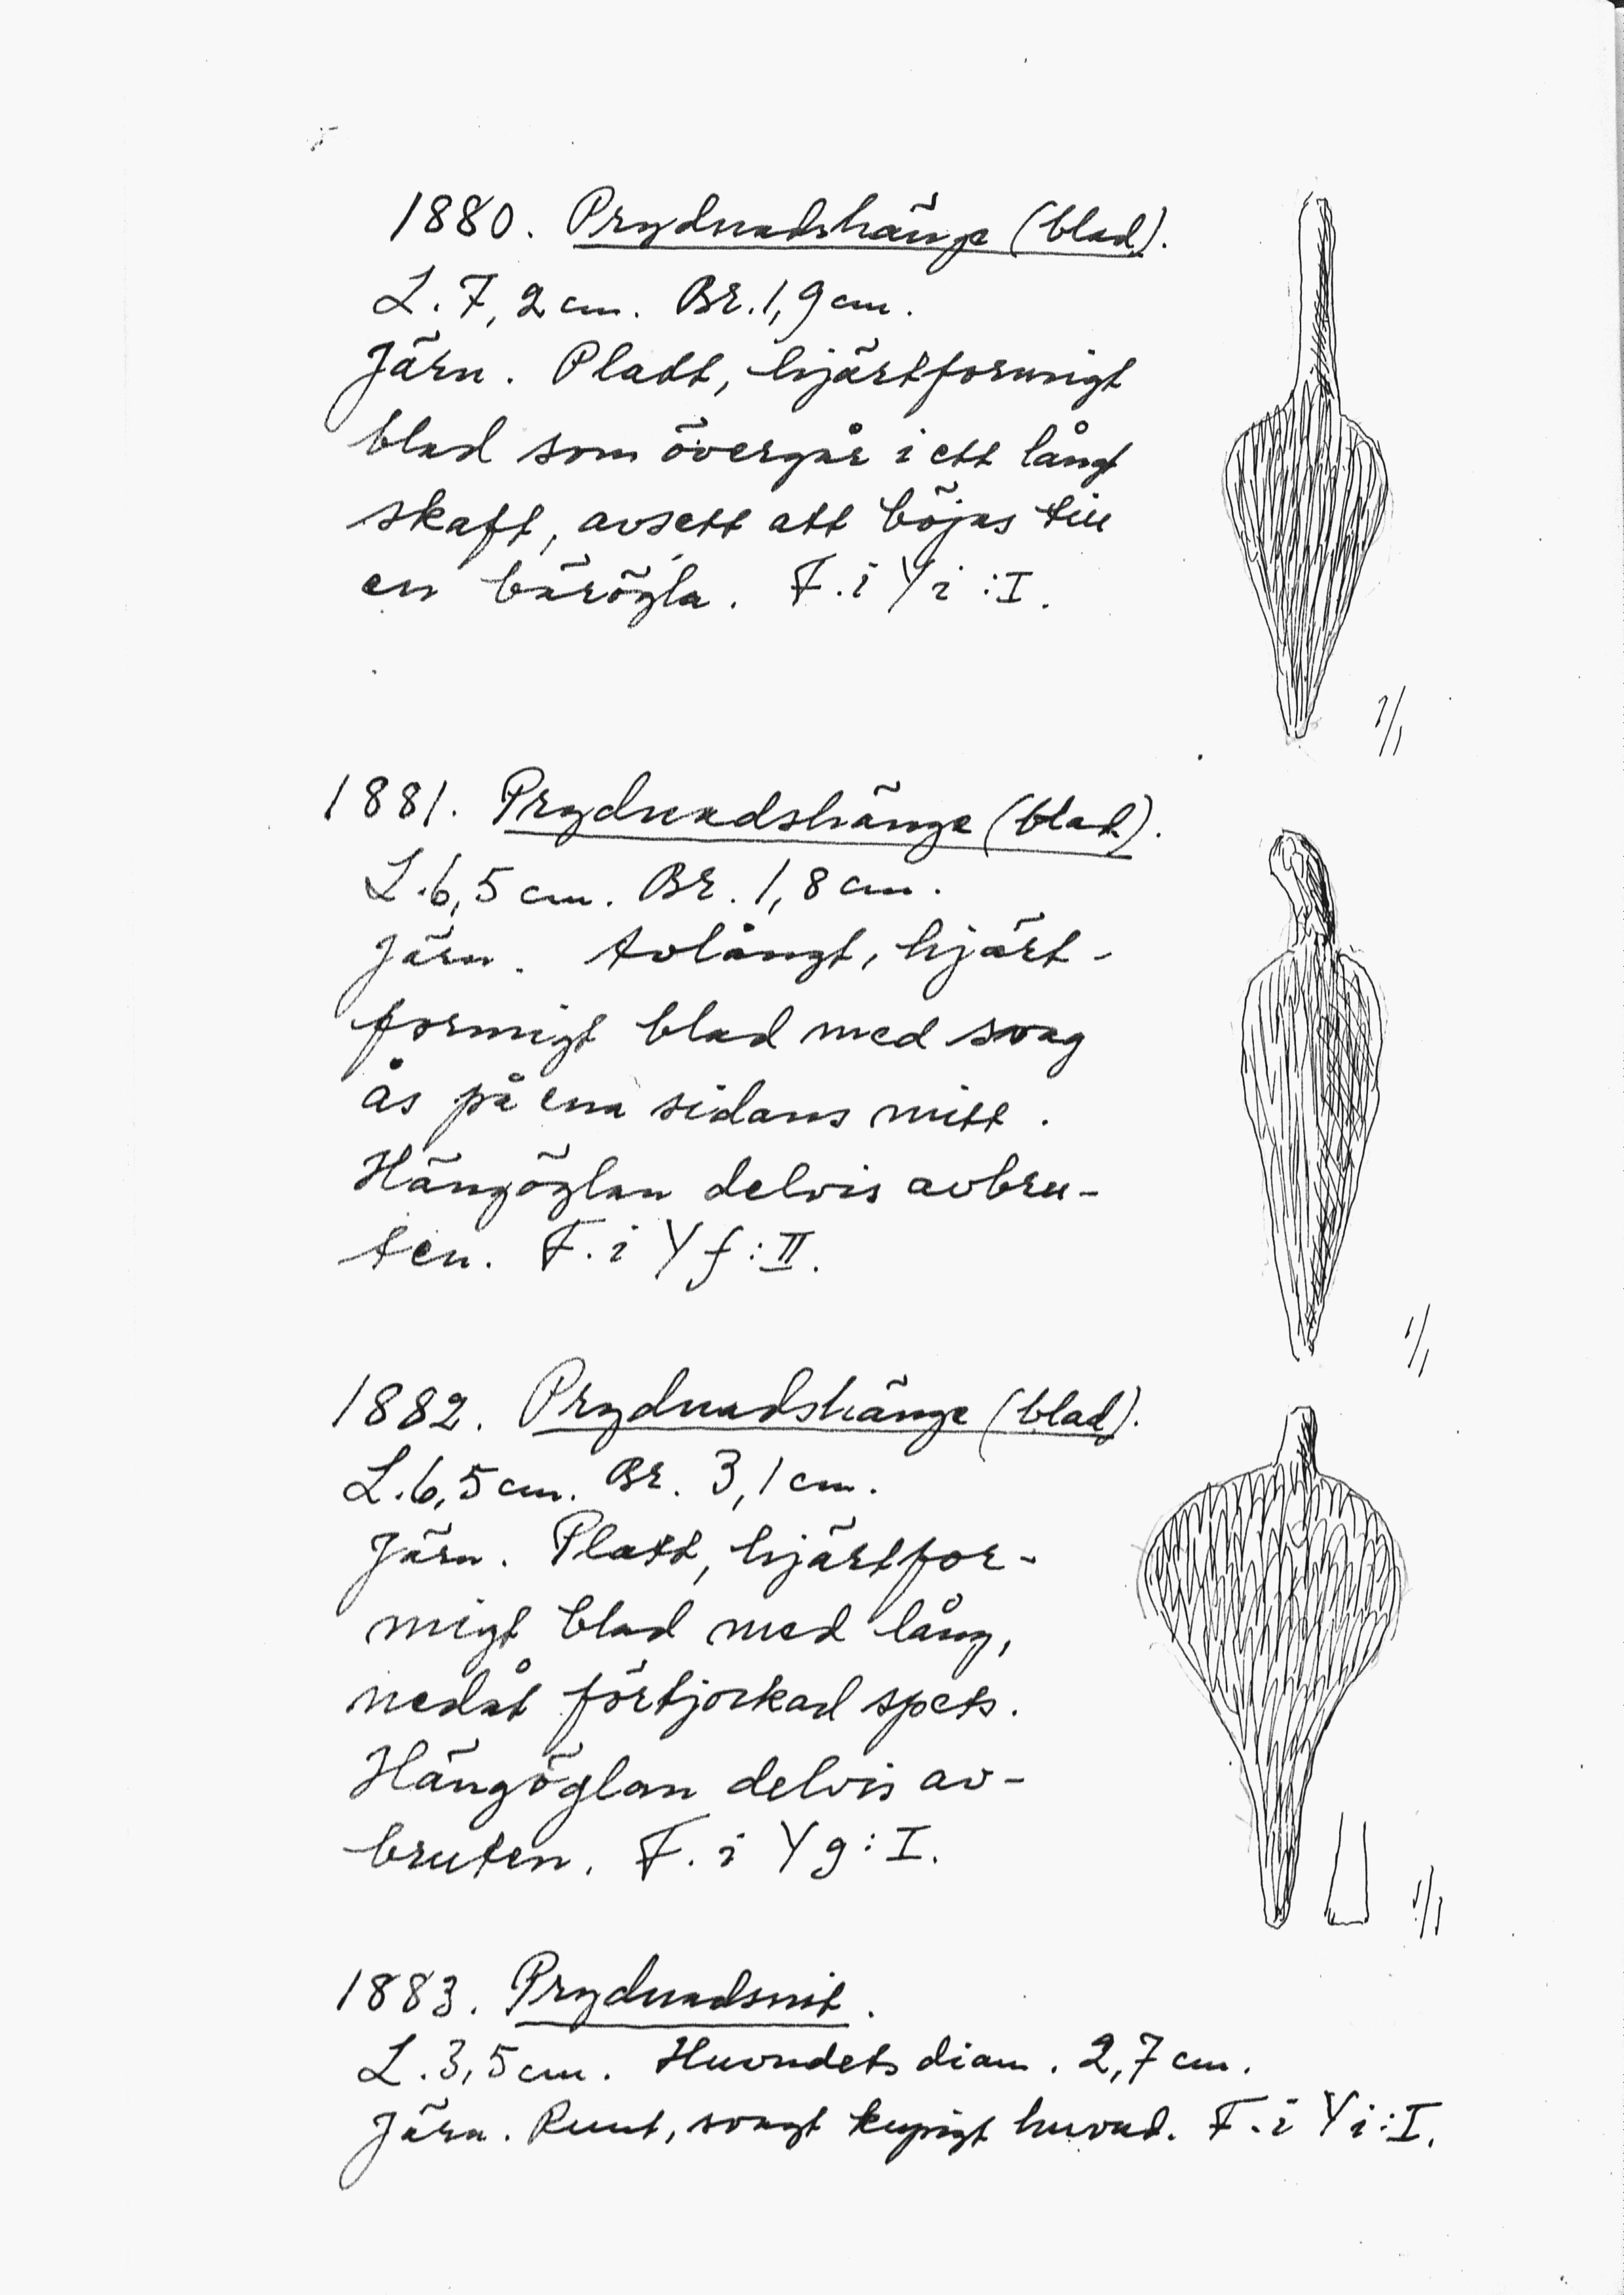 1880. Prydnadshänge (blad).
L. 7,2 cm. Br. 1,9 cm.
Järn. Platt, hjärtformigt
blad som övergår i ett långt
skaft, avsett att böjas till
en bärögla. F. i Yi:I.
1/1
1881. Prydnadshänge (blad).
L. 6,5 cm. Br. 1,8 cm.
Järn. Avlångt, hjärt-
formigt blad med svag
ås på ena sidans mitt.
Hängöglan delvis avbru-
ten. F. i Yf:II.
1/1
1882. Prydnadshänge (blad).
L. 6,5 cm. Br. 3,1 cm.
Järn. Platt, hjärtfor-
migt blad med lång,
nedåt förtjockad spets.
Hängöglan delvis av-
bruten. F. i Yg:I.
1/1
1883. Prydnadsnit.
L. 3,5 cm. Huvudets diam. 2,7 cm.
Järn. Runt, svagt kupigt huvud. F. i Yi:I.